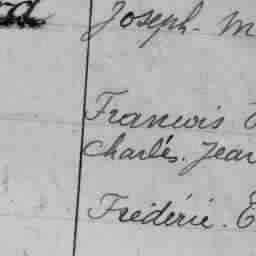 Joseph. M
Francois
Charles. Jean
Frédéric. E